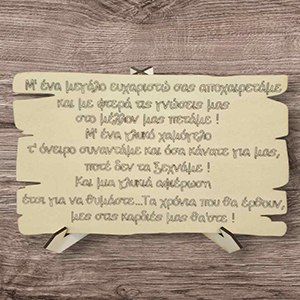 Μ' ένα μεγάλο ευχαριστώ σας αποχαιρετάμε
και με φτερά τις γνώσεις μας
στο μέλλον μας πετάμε !
Μ' ένα γλυκό χαμόγελο
τ' όνειρο συναντάμε και όσα κάνατε για μας,
ποτέ δεν τα ξεχνάμε !
Και μια γλυκιά αφιέρωση
έτσι για να θυμάστε...Τα χρόνια που θα έρθουν,
μες στις καρδιές μας θα'στε !